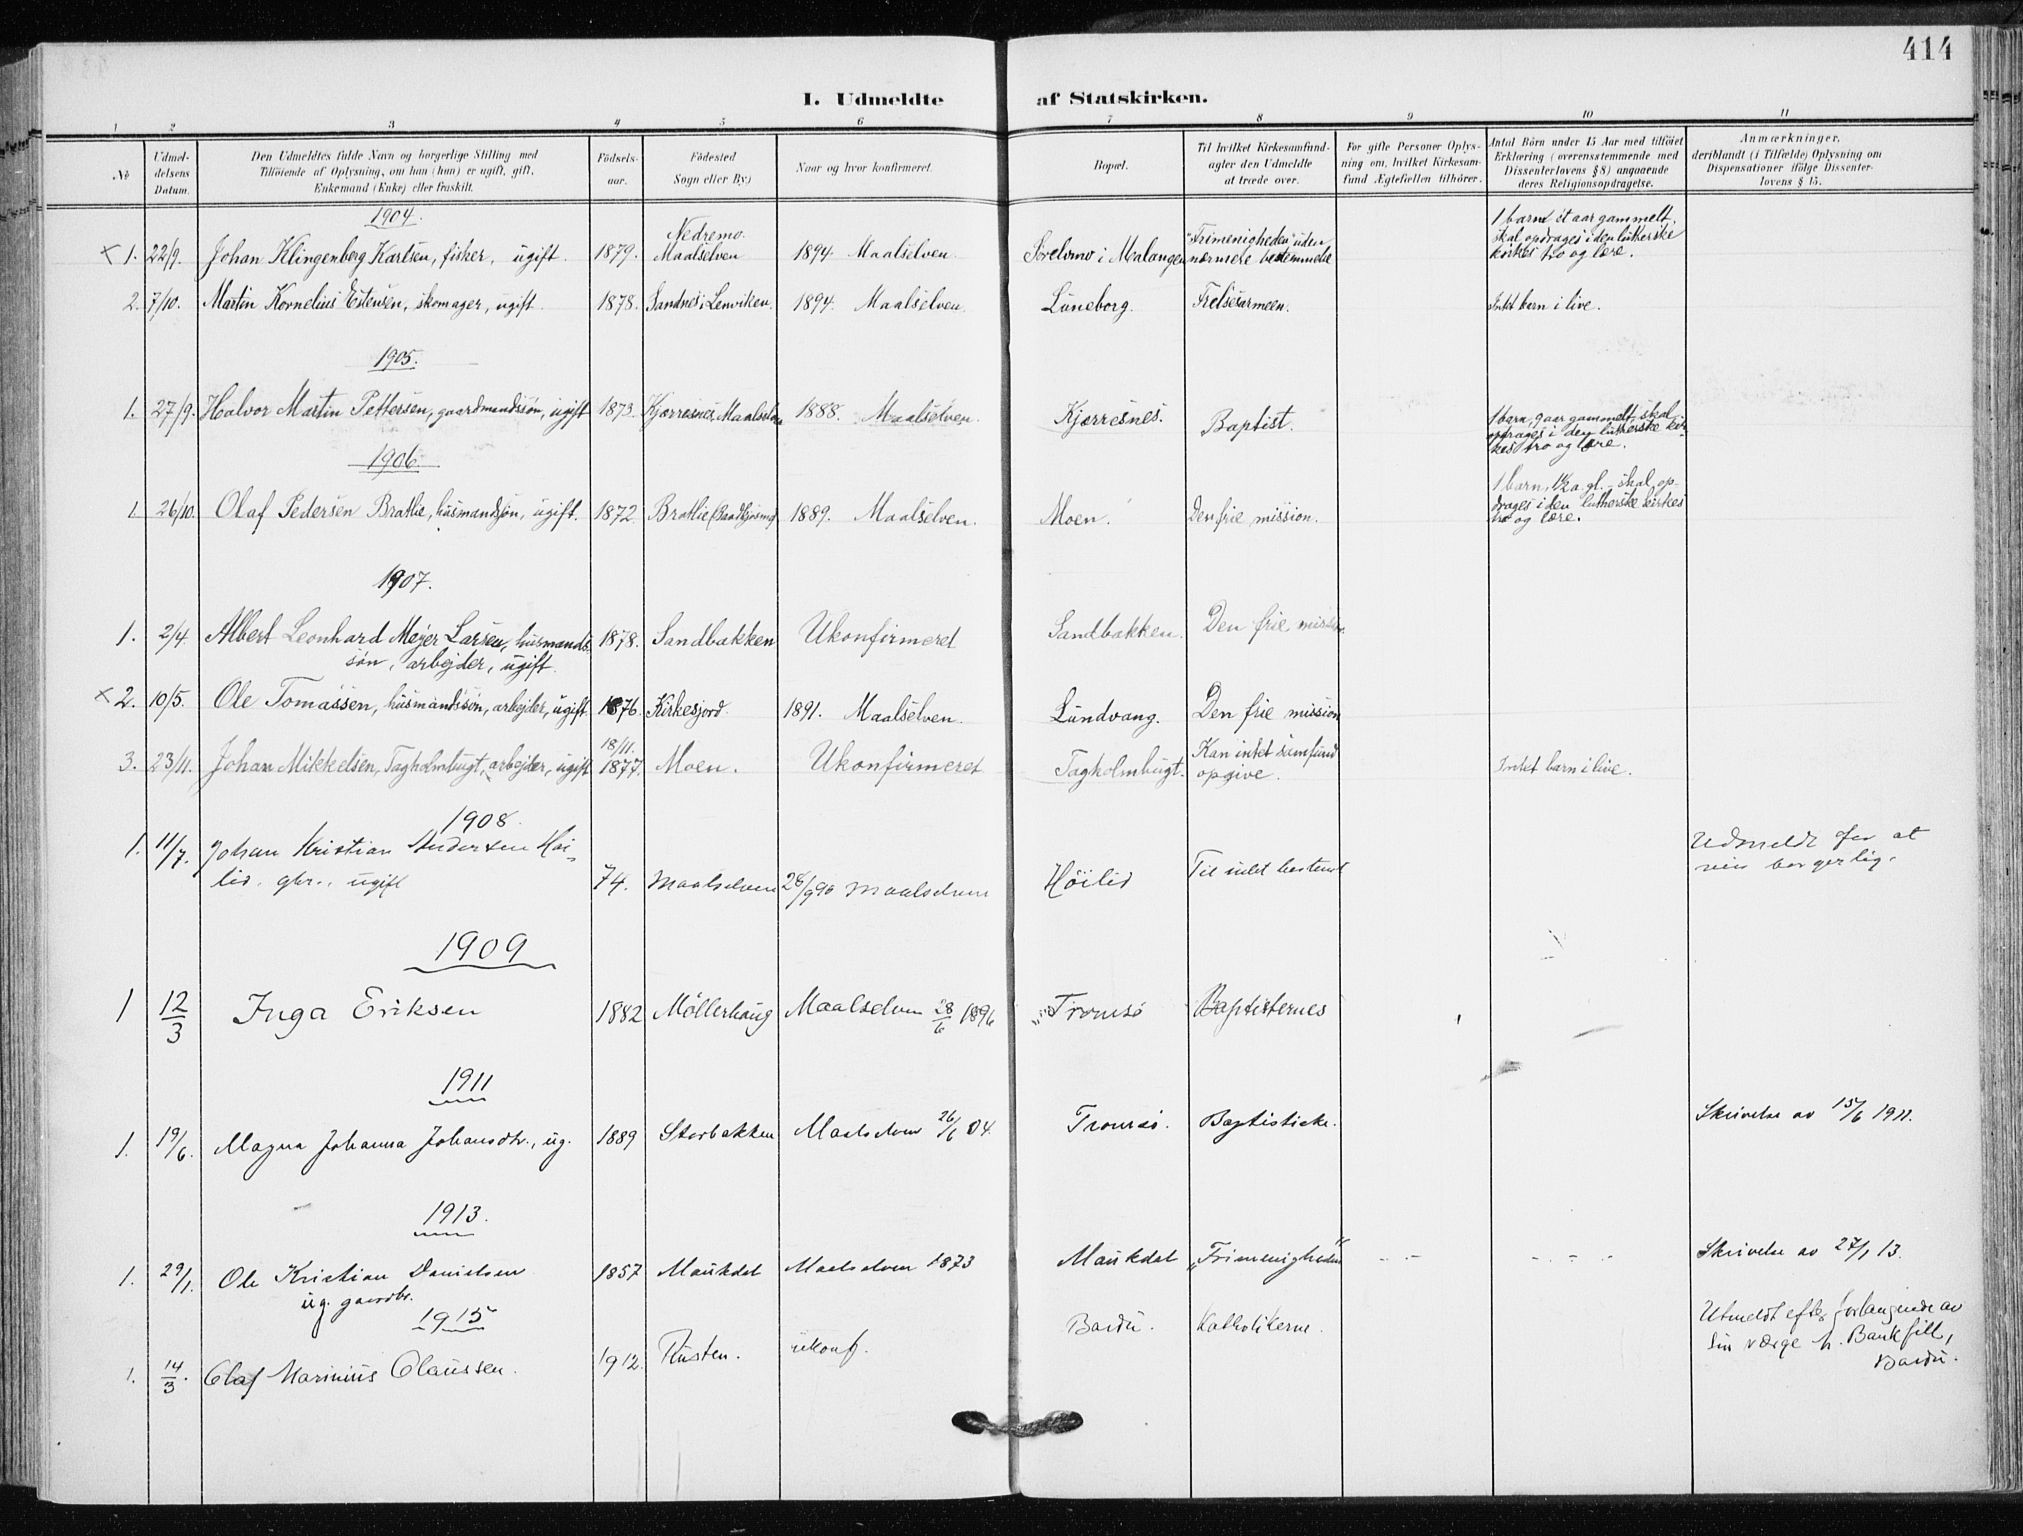 414
I. Udmeldte af Statskirken.
1 2 3 4 5 6 7 8 9 10 11
№
Udmel-
delsens
Datum.
Den Udmeldtes fulde Navn og borgerlige Stilling med
Tilföiende af Oplysning, om han (hun) er ugift, gift,
Enkemand (Enke) eller fraskilt.
Födsels-
aar.
Födested
Sogn eller By.)
Naar og hvor konfirmeret.
Bopæl.
Til hvilket Kirkesamfund-
agter den Udmeldte
at træde over.
For gifte Personer Oplys-
ning om, hvilket Kirkesam-
fund Ægtefællen tilhörer.
Antal Börn under 15 Aar med tilföiet
Erklæring (overensstemmende med
Dissenterlovens § 8) angaaende
deres Religionsopdragelse.
Anmærkninger,
deriblandt (i Tilfælde) Oplysning om
Dispensationer ifölge Dissenter-
lovens § 15.
1904.
× 1. 22/9. Johan Klingenberg Karlsen, fisker, ugift. 1879. Nedremo. Maalselven 1894. Maalselven. i Malangen "Frimenigheden" uden nærmere bestemmelse
1 barn et aar gammelt.
skal opdrages i den lutherske
kirkes tro og lære.
2. 7/10. Martin Kornelius Estensen, skomager, ugift. 1878. Sandnes i Lenviken. 1894. Maalselven. Luneborg. Frelsesarmeen. Intet barn i live.
1905.
1. 27/9. Halvor Martin Pettersen, gaardmandssøn, ugift 1873. Kjærresnes, Maalselven 1888. Maalselven. Kjærresnes. Baptist.
1 barn, 9 aar gammelt, skal
opdrages i den lutherske kir-
kes tro og lære.
1906.
1. 26/10. Olaf Pedersen Bratlie, husmandssøn, ugift. 1872. Bratlie 1889. Maalselven. Moen. Den frie mission.
1 barn, 1/2 a. gl. skal op-
drages i den lutherske kirkes
tro og lære.
1907.
1. 2/4. Albert Leonhard Mejer Larsen, husmands-
søn, arbejder, ugift. 1878. Sandbakken Ukonfirmeret Sandbakken. Den frie mission.
× 2. 10/5. Ole Tomassen, husmandssøn, arbejder, ugift 1876. Kirkesjord. 1891. Maalselven. Lundvang. Den frie mission
3. 23/11. Johan Mikkelsen, Tagholmbugt, arbejder, ugift 18/11. 1877. Moen. Ukonfirmeret Tagholmbugt. Kan intet samfund opgive. Intet barn i live.
1908.
1. 11/7. Johan Kristian Andersen Høi-
lid. gbr., ugift 74. Maalselven 28/9 90 Maalselven Höilid Til intet bestemt
Udmeldt for at
vies borgerlig.
1909
1 12/3 Inga Eriksen 1882 Møllerhaug Maalselven 28/6 1896 Tromsø Baptisternes
1911
1. 19/6. Magna Johanna Johansdtr., ug. 1889 Storbakken Maalselven 26/6 04. Tromsø. Baptistiske. Skrivelse av 15/6 1911.
1913.
1. 29/1. Ole Kristian Danielsen
ug. gaardbr. 1857 Maukdal Maalselven 1873 Maukdal „Frimenigheden" Skrivelse av 27/1 13.
1915
1. 14/3. Olaf Marinius Olaussen. 1912. Rusten. ukonf. Bardu. Katholikerne.
Utmeldt efter forlangende av
sin værge h. Bardu.